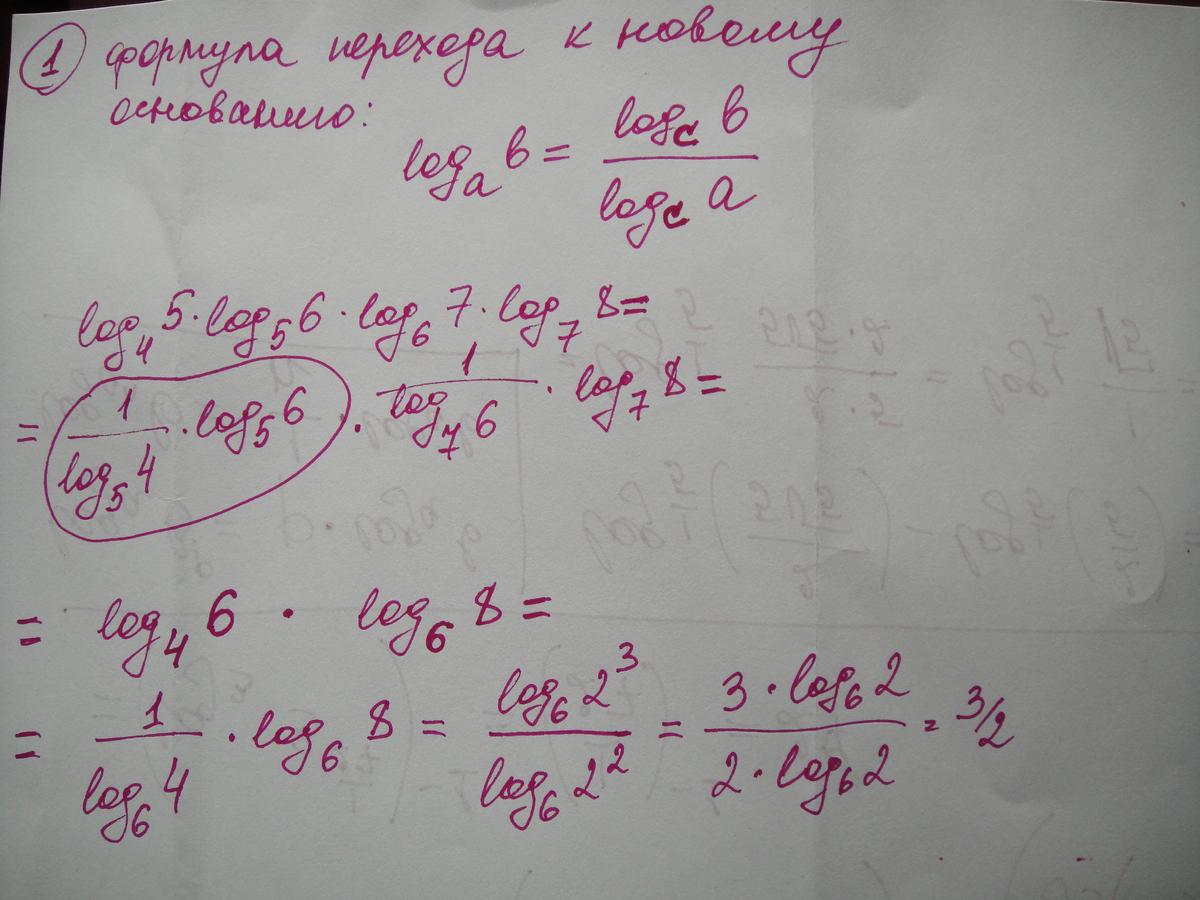 ① формула перехода к новому
основанию:
logₐ b = log_c b / log_c a
log₄ 5 · log₅ 6 · log₆ 7 · log₇ 8 =
= 1 / log₅ 4 · log₅ 6 · 1 / log₇ 6 · log₇ 8 =
= log₄ 6 · log₆ 8 =
= 1 / log₆ 4 · log₆ 8 = log₆ 2³ / log₆ 2² = 3 · log₆ 2 / 2 · log₆ 2 = 3/2